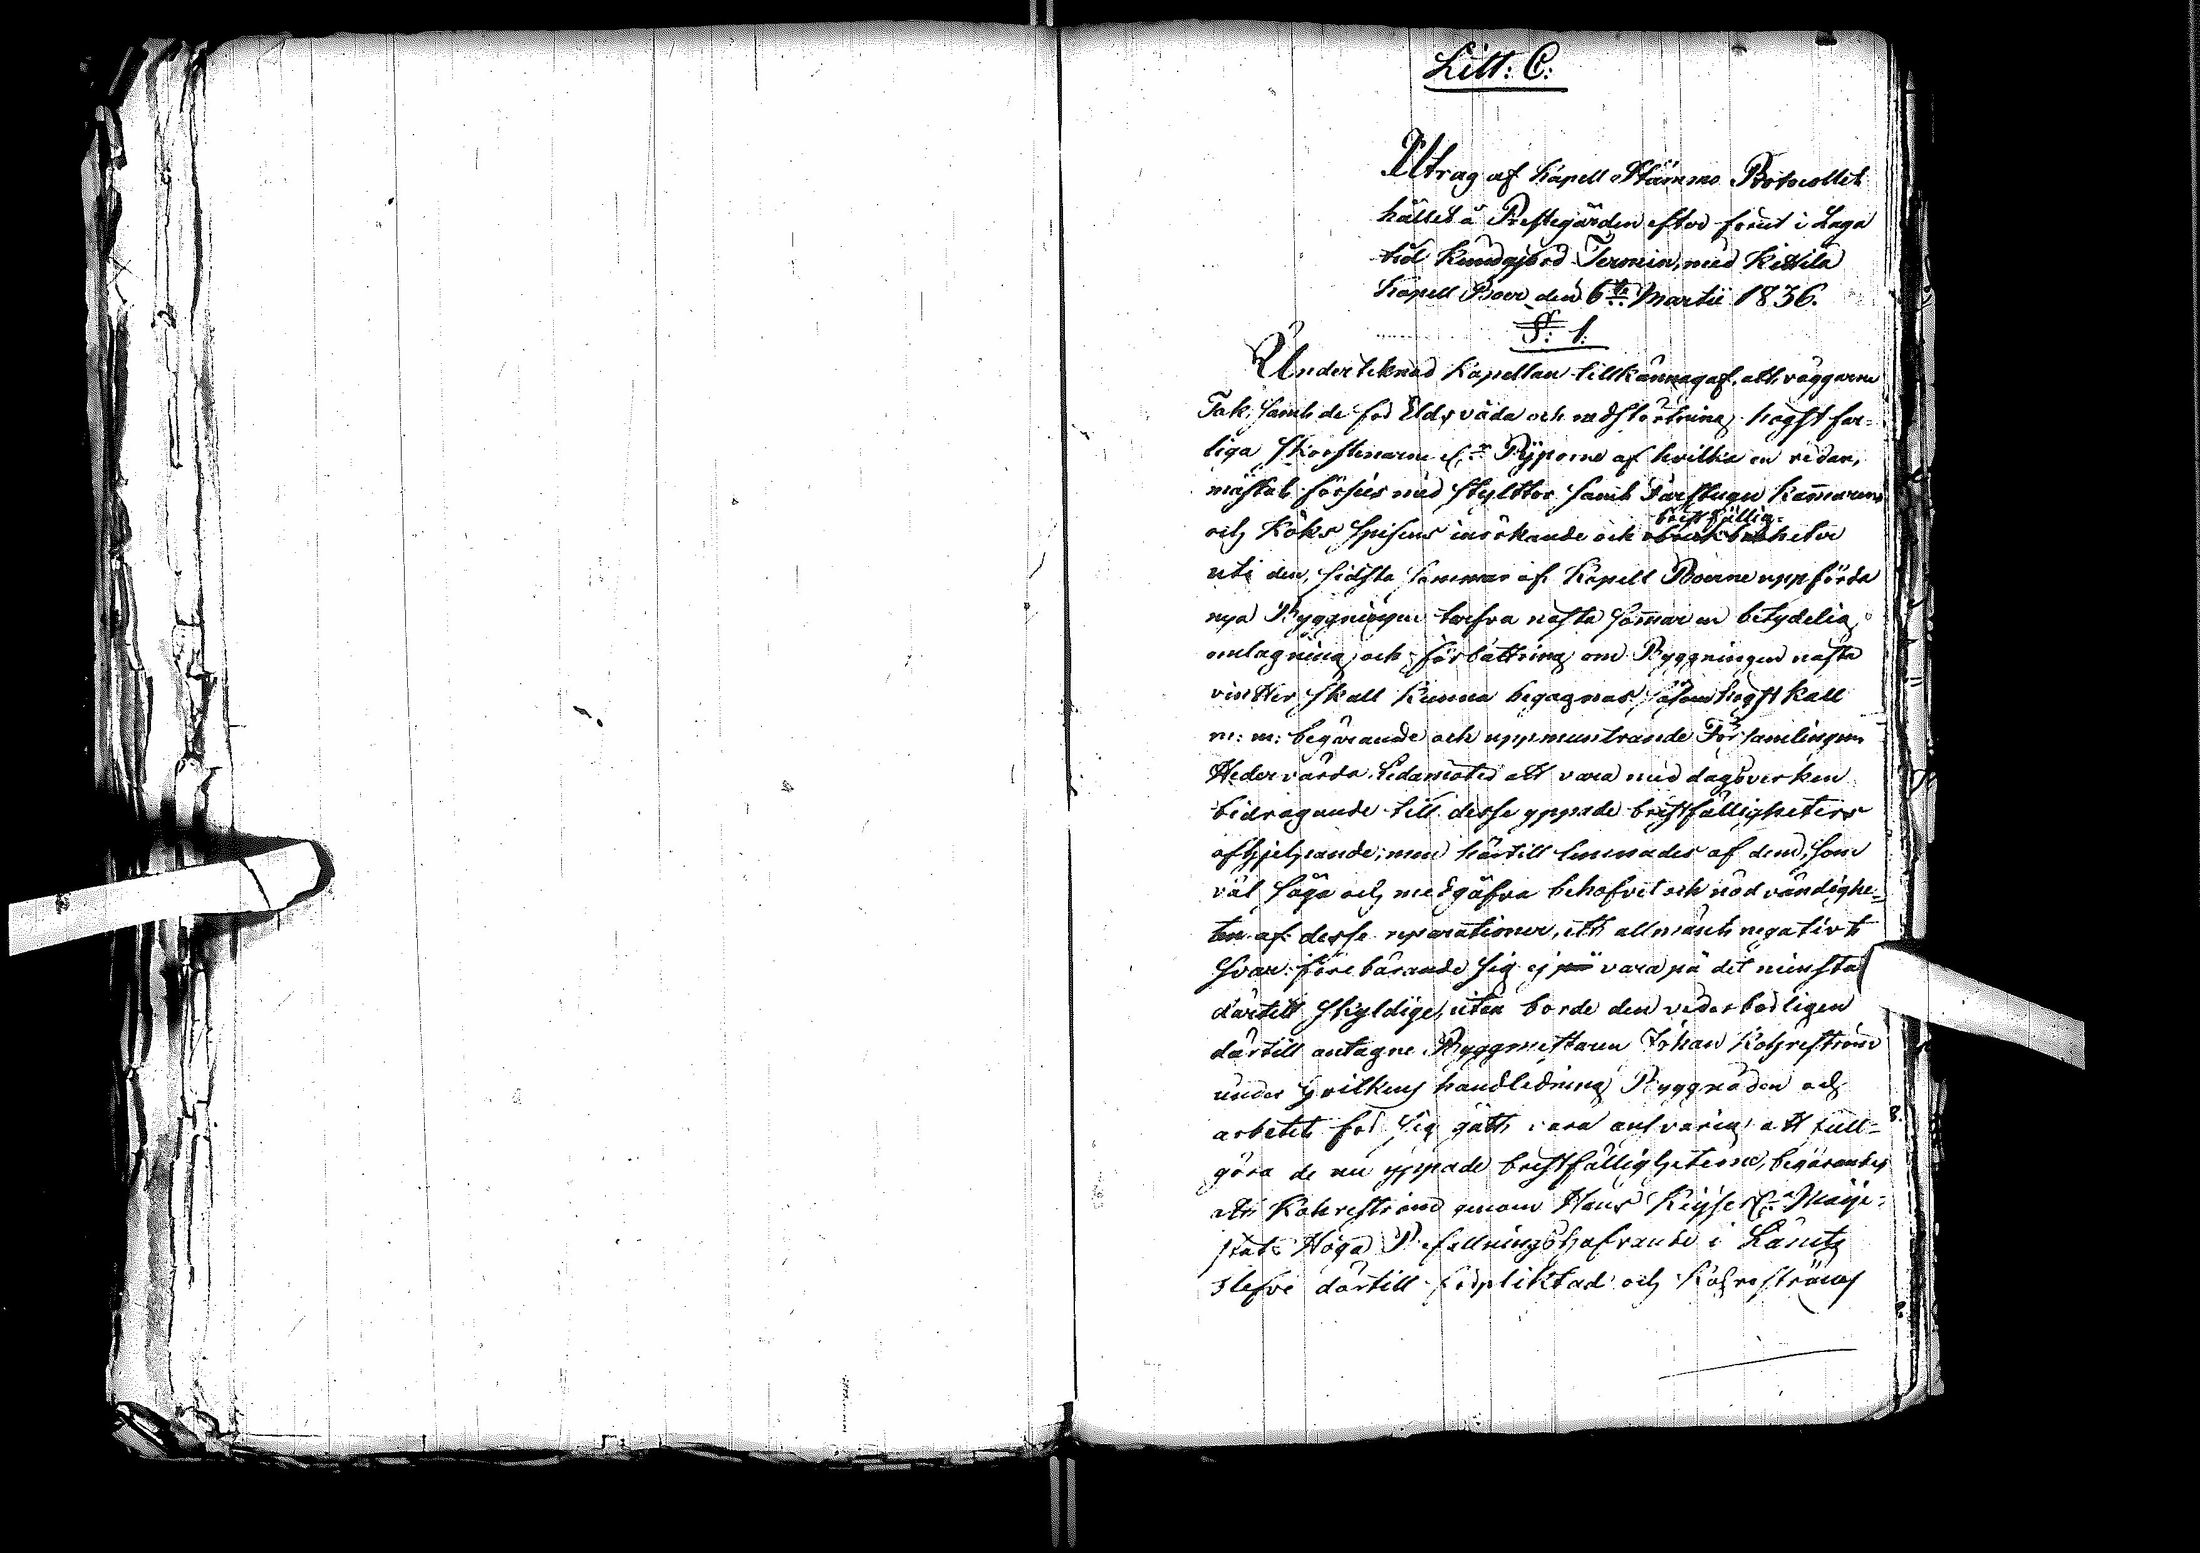 Litt: C:
Utrag af Kapell Stämmo Protocollet
hållet å Prestegården efter förut i Laga
tid kundgjord Termin, med Kittilä
Kapell Boer den 6te Martii 1836.
§: 1.
Underteknad Kapellan tillkännagaf, att väggarne
Tak, samt de för Eldsvåda och nedstörtning högst far=
liga Skorstenarne af hvilka en redan,
måstat förses med styltor samt Farstugu Kammarens
och Köks Spisens inrökande och
bristfällig=
heter
uti den, sidsta sommar af Kapell Boerne uppförda
nya Byggningen tarfva nästa sommar en betydelig
omlagning och förbättring om Byggningen nästa
vintter skall kunna begagnas, såsom högst kall
m: m: begärande och uppmuntrande Församlingens
Hedervärda Ledamöter att vara med dagsverken
bidragande till desse yppade bristfälligheters
afhjelpande; men härtill lemnades af dem, som
väl såga och medgåfva behofvet och nödvändighe=
ten af desse reparationer, ett allmänt negativt
Svar förebärande sig ej vara på det minsta
därtill skyldige, utan borde den vederbörligen
därtill antagne Byggmettaren Johan Kohreström
under hvilkens handledning Byggnaden och
arbetet för sig gått, vara ansvarig att full=
göra de nu yppade bristfälligheterne, begärandes
att Kohreström genom Hans Keijserl: Maije=
stäts Höga Befallningshafvande i Länet
blefve därtill förpliktad och Kohreströms